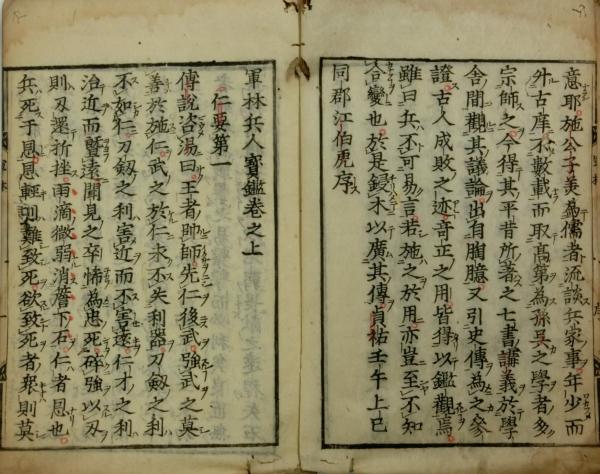 意耶施公子美為儒者流談兵家事年少而
外古庠不數載而取高第為孫吳之學者多
宗師之今得其平昔所著之七書講義於學
舍間觀其議論出有胸臆又引史傳為之參
證古人成敗之迹奇正之用皆得以鑑觀焉
雖曰兵不可易言若施之於用亦豈至不知
合變也於是鋟木以廣其傳貞祐壬午上巳
同郡江伯虎序
軍林兵人寶鑑卷之上
仁要第一
傳說咨湯曰王者帥師先仁後武強武之莫
善於施仁武之於仁未不失利器刀劔之利
不如仁刀劔之利害近而不害遠仁才之利
治近而曁遠聞見之卒怖為忠死碎強以刃
則刃還折挫雨滴微弱消簷下石仁者恩也
兵死于恩恩輕則難致死欲致死者衆則莫